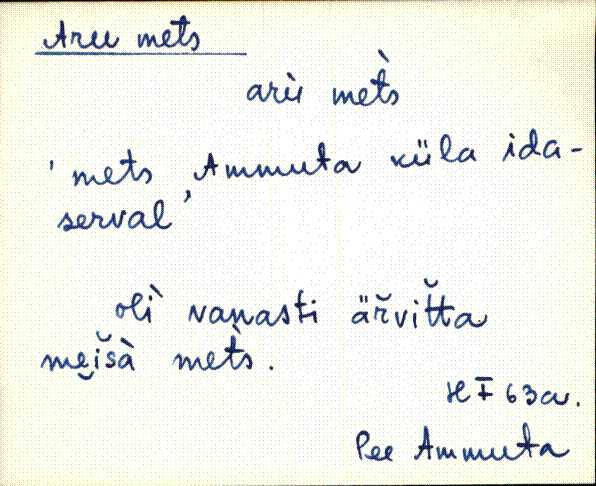 Aru mets
arù mèts
'mets Ammuta küla ida-
serval'
olì vanasti är̆vĭtta
mei̯š̆à mèts.
H Ī 63a.
Pee Ammuta